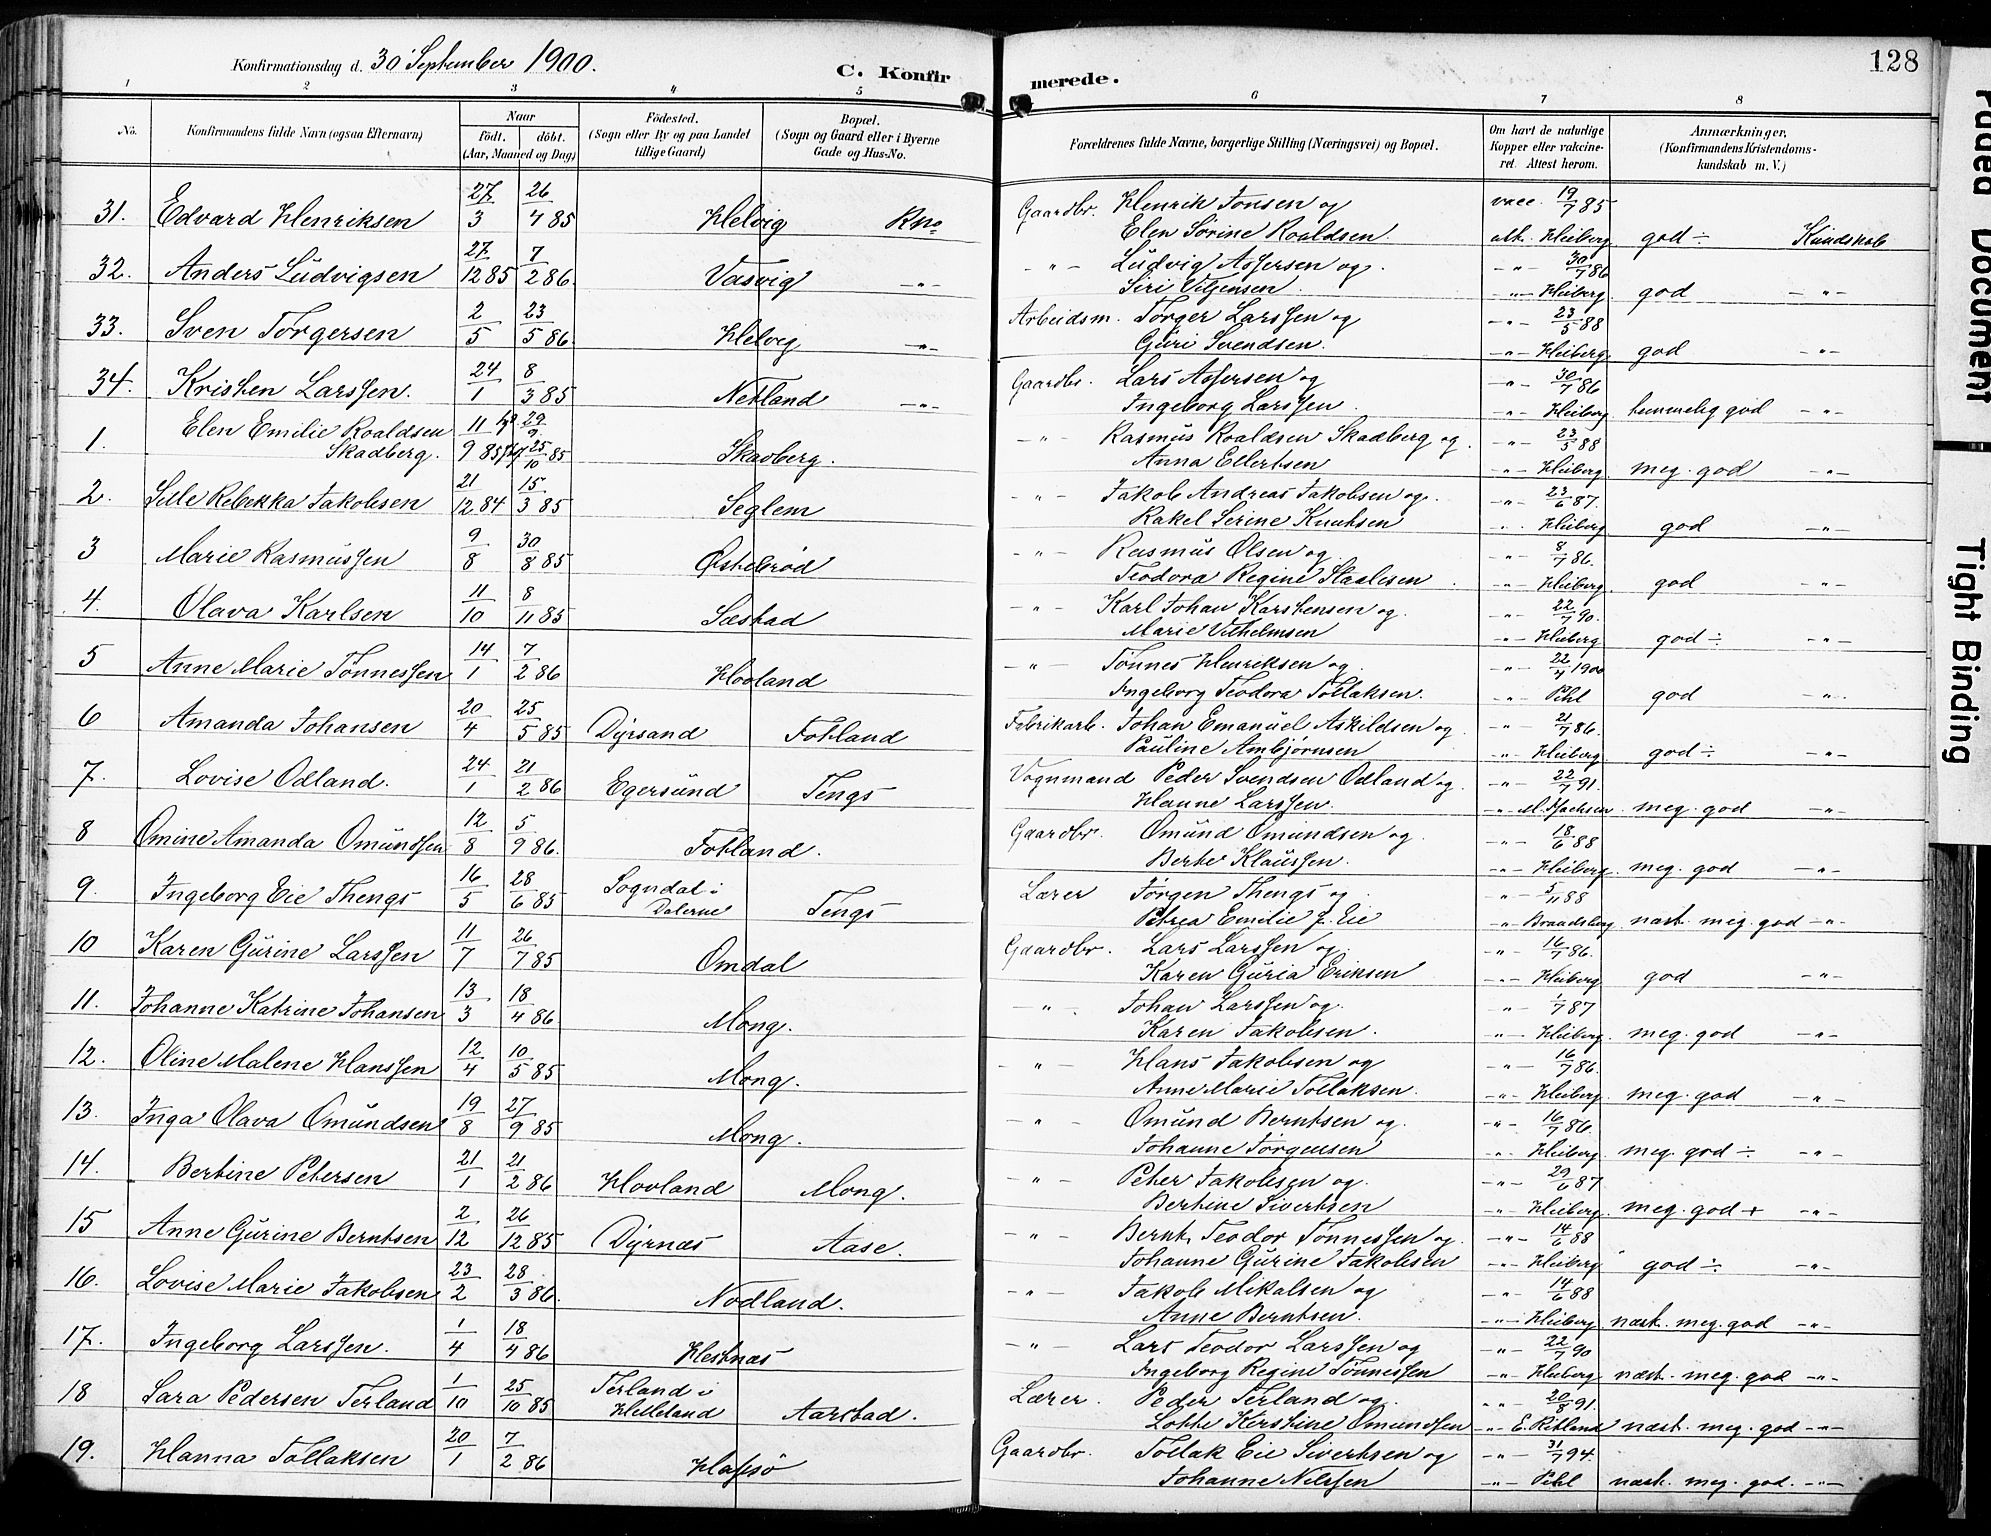 Konfirmationsdag d. 30 September 1900.
C. Konfirmerede.
128
1 2 3 4 5 6 7 8
No.
Konfirmandens fulde Navn (ogsaa Efternavn)
Naar
født. døbt.
(Aar, Maaned og Dag)
Fødested.
(Sogn eller By og paa Landet
tillige Gaard)
Bopæl.
(Sogn og Gaard eller i Byerne
Gade og Hus-No.
Forældrenes fulde Navne, borgerlige Stilling (Næringsvei) og Bopæl.
Om havt de naturlige
Kopper eller vakcine-
ret. Attest herom.
Anmærkninger,
(Konfirmandens Kristendoms-
kundskab m. V.)
31. Edvard Henriksen 27/3 26/4 85 Helvig Gaardbr. Henrik Jonsen og vacc. 19/7 85
Elen Sørine Roaldsen. att. Heiberg god ÷ Kundskab
32. Anders Ludvigsen 27/12 85 7/2 86 Vasvig -"- -"- Ludvig Assersen og -"- 30/7 86
Siri Vilsensen. -"- Heiberg. god -"-
33. Sven Torgersen 2/5 23/5 86 Helvig -"- Arbeidsm. Torger Larssen og -"- 23/5 88
Guri Svendsen. -"- Heiberg. god -"-
34. Kristen Larssen. 24/1 8/3 85 Netland -"- Gaardbr. Lars Assersen og -"- 30/7 86
Ingeborg Larssen. -"- Heiberg temmelig god -"-
1. Elen Emilie Roaldsen Skadberg. 11/9 85 29/9 25/10 85 Skadberg. -"- Rasmus Roaldsen Skadberg og -"- 23/5 88
Anna Ellertsen -"- Heiberg. meg. god -"-
2. Sille Rebekka Jakobsen 21/12 84 15/3 85 Seglem -"- Jakob Andreas Jakobsen og -"- 23/6 87.
Rakel Serine Knutsen -"- Heiberg god -"-
3 Marie Rasmussen 9/8 30/8 85 Østebrød -"- Rasmus Olsen og -"- 8/7 86.
Teodora Regine Staalesen -"- Heiberg. god -"-
4. Olava Karlsen 11/10 8/11 85 Sæstad -"- Karl Johan Karstensen og. -"- 22/7 90.
Marie Vilhelmsen -"- Heiberg god ÷ -"-
5 Anne Marie Tønnessen 14/1 7/2 86 Hovland -"- Tønnes Henriksen og. -"- 22/4 1900
Ingeborg Teodora Tollaksen. -"- Pihl god -"-
6 Amanda Johansen 20/4 25/5 85 Dyrsand Fotland Fabrikarb. Johan Emanuel Askildsen og -"- 21/7 86.
Pauline Ambjørnsen -"- Heiberg. god ÷ -"-
7. Lovise Odland. 24/1 21/2 86 Egersund Tengs Vognmand Peder Svendsen Odland og -"- 22/7 91.
Hanne Larssen. -"- meg. god -"-
8 Omine Amanda Omundsen 12/8 5/9 86. Fotland. Gaardbr. Omund Omundsen og -"- 18/6 88
Berte Klaussen. -"- Heiberg. meg. god -"-
9. Ingeborg Eie Thengs 16/5 28/6 85 Sogndal i Dalerne Tengs Lærer Jørgen Thengs og -"- 5/11 88
Petrea Emilie J. Eie -"- Brandsberg næst. meg. god -"-
10 Karen Gurine Larssen 11/7 26/7 85 Omdal Gaardbr. Lars Larssen og. -"- 16/7 86.
Karen Guria Eriksen -"- Heiberg god -"-
11. Johanne Katrine Johansen 13/3 18/4 86 Mong. -"- Johan Larssen og. -"- 1/7 87
Karen Jakobsen. -"- Heiberg. meg. god -"-
12. Oline Malene Hanssen 12/4 10/5 85 Mong. -"- Hans Jakobsen og -"- 16/7 86.
Anne Marie Tollaksen. -"- Heiberg. meg. god -"-
13. Inga Olava Omundsen 19/8 27/9 85 Mong. -"- Omund Berntsen og. -"- 16/7 86.
Johanne Jørgensen -"- Heiberg. meg. god ÷ -"-
14. Bertine Petersen 21/1 21/2 86 Hovland Mong. -"- Peter Jakobsen og. -"- 29/6 87
Bertine Sivertsen -"- Heiberg. meg. god + -"-
15 Anne Gurine Berntsen 2/12 26/12 85 Dyrnæs Aase. -"- Bernt Teodor Tønnessen og. -"- 14/6 88
Johanne Gurine Jakobsen -"- Heiberg god ÷ -"-
16. Lovise Marie Jakobsen 23/2 28/3 86. Nodland. -"- Jakob Mikalsen og -"- 14/6 88
Anne Berntsen. -"- Heiberg. næst. meg. god -"-
17. Ingeborg Larssen. 1/4 18/4 86 Hestnæs -"- Lars Teodor Larssen og -"- 22/7 90
Ingeborg Regine Tønnessen -"- Heiberg næst. meg. god -"-
18 Sara Pedersen Terland 1/10 25/10 85 Terland i Helleland Aarstad. Lærer. Peder Terland og -"- 20/8 91.
Lotte Kerstine Omundsen -"- E. Ritland næst. meg. god -"-
19. Hanna Tollaksen 20/1 7/2 86 Hafsø Gaardbr. Tollak Eie Sivertsen og -"- 31/7 94.
Johanne Nilssen -"- Pihl næst. meg. god. -"-
Faded Document
Tight Binding